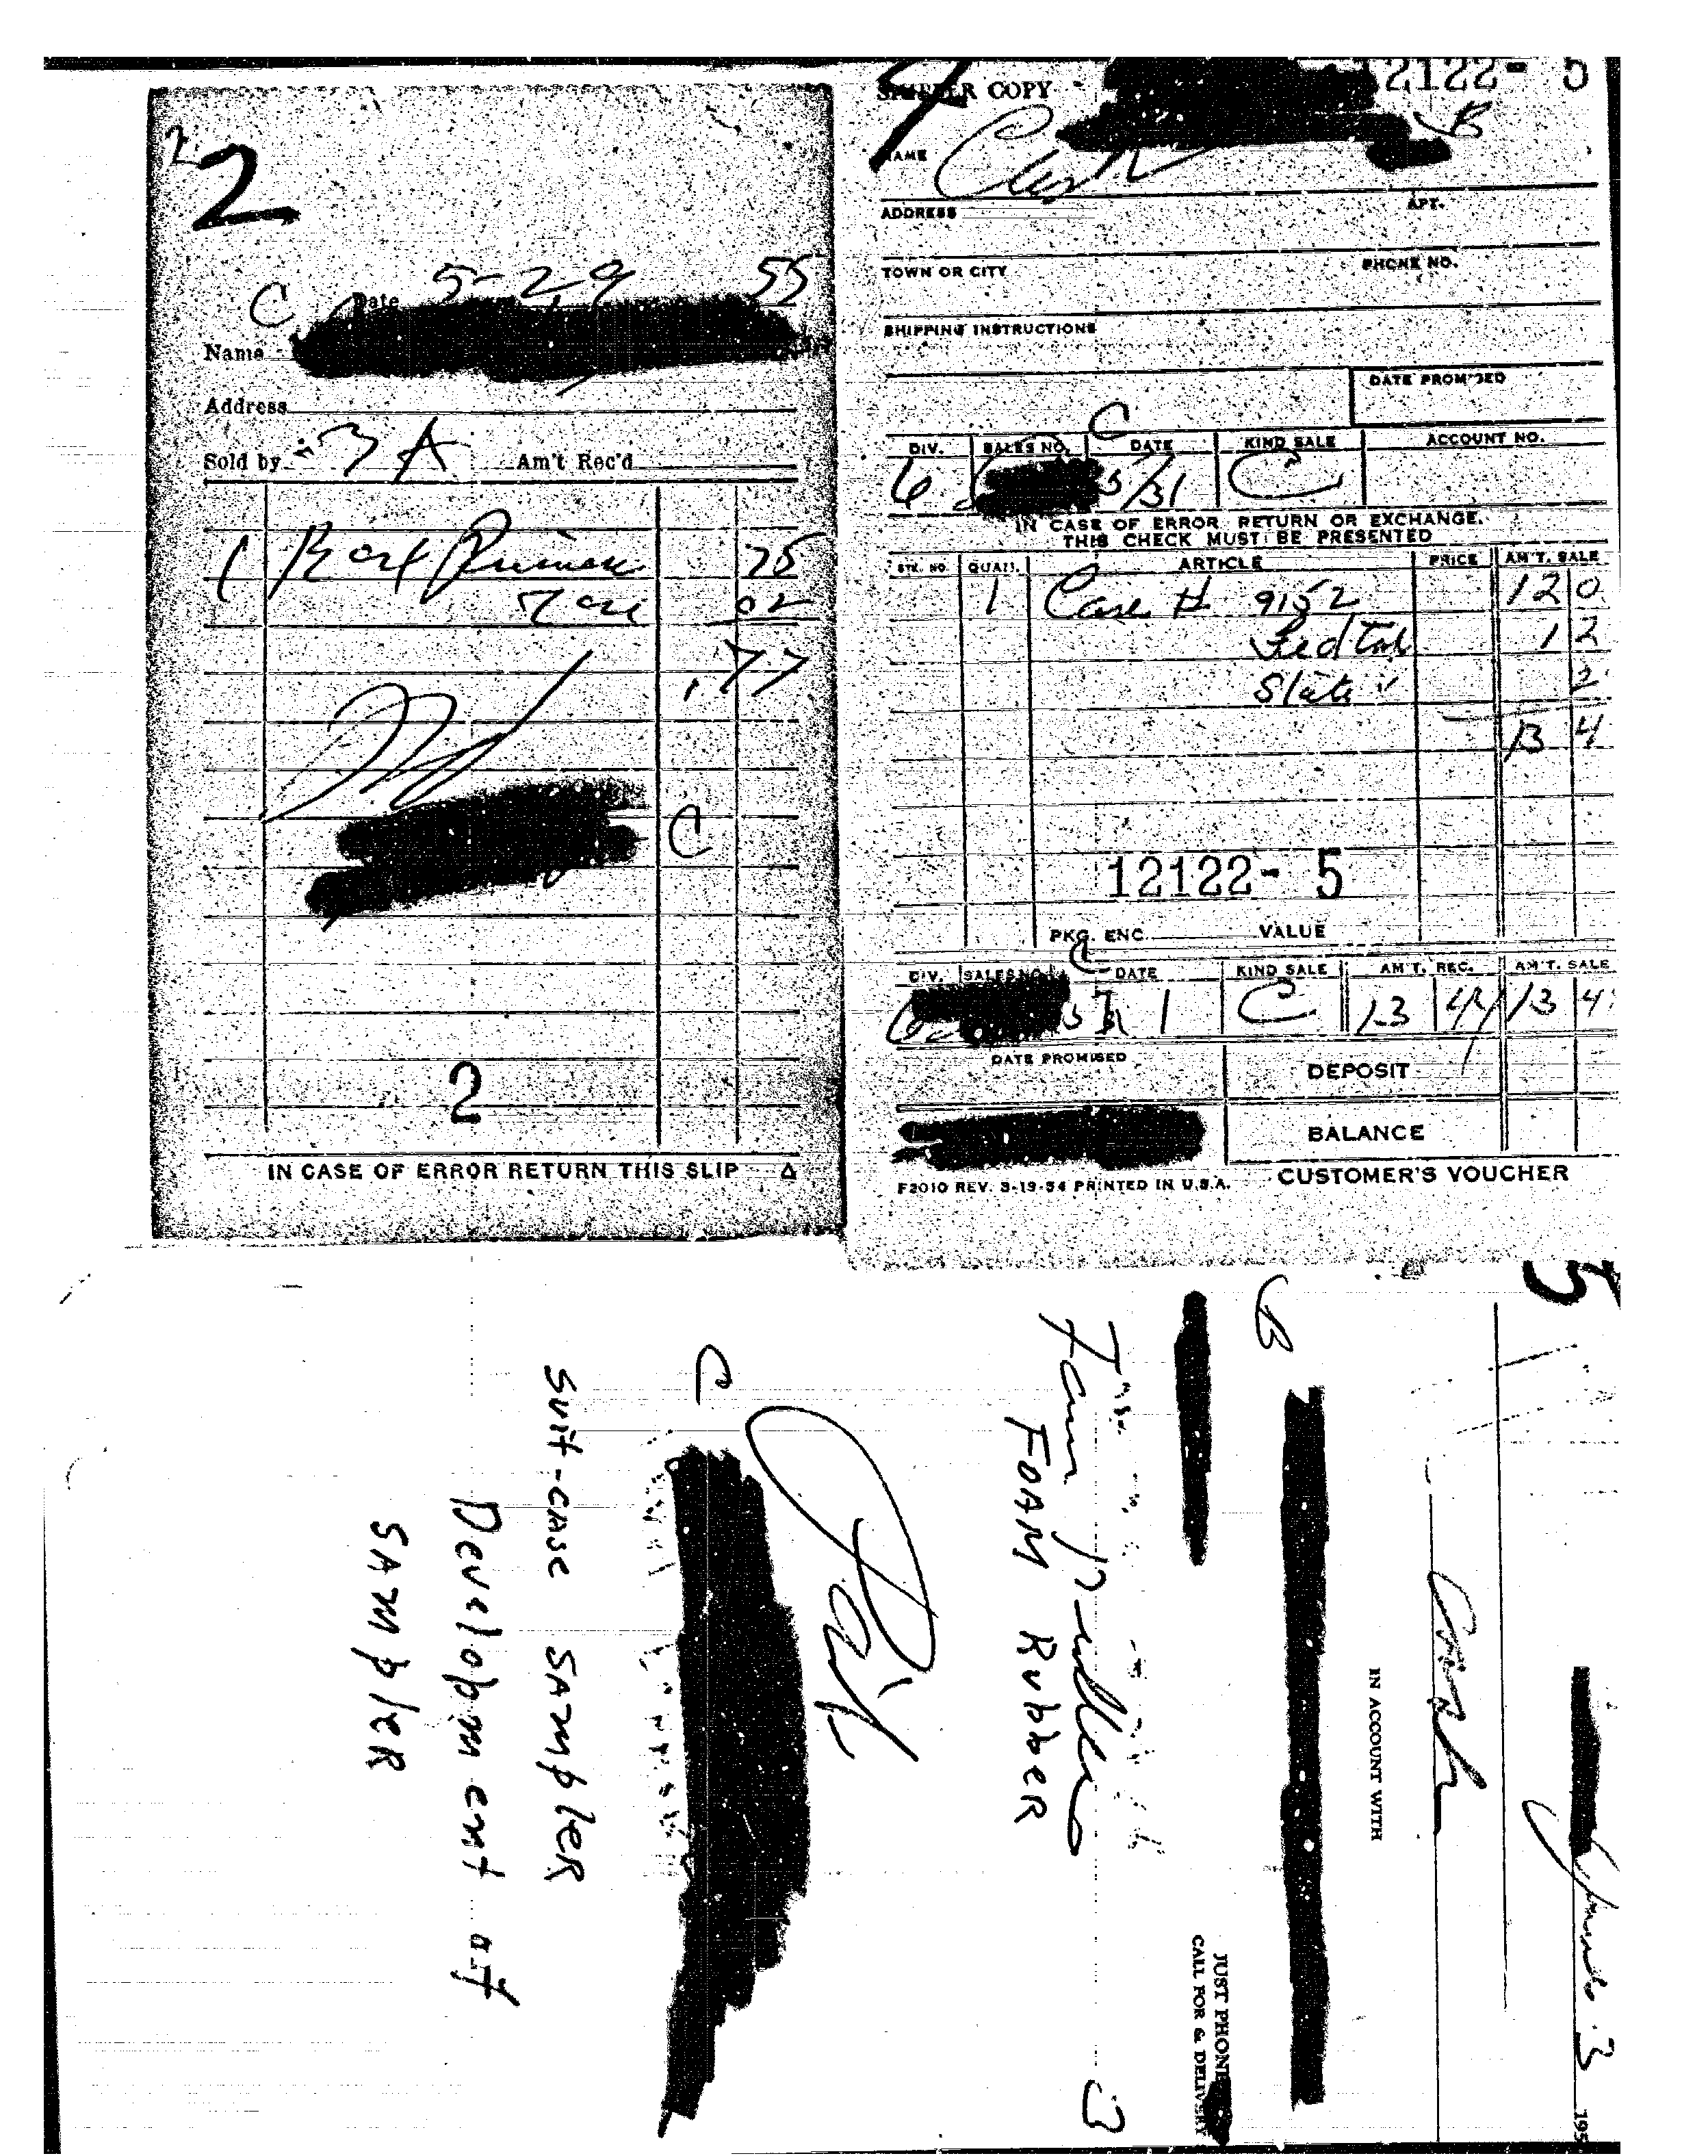 2
2
C Date 5-29 55
Name
Address
Sold by 3A Am't Rec'd
1 75
02
.77
C
2
IN CASE OF ERROR RETURN THIS SLIP
COPY 12122-5
B
NAME Cash
ADDRESS APT.
TOWN OR CITY PHONE NO.
SHIPPING INSTRUCTIONS
DATE PROMISED
C
DIV. SALES NO. DATE KIND SALE ACCOUNT NO.
6 5/31 C
IN CASE OF ERROR RETURN OR EXCHANGE.
THIS CHECK MUST BE PRESENTED
STK. NO. QUAN. ARTICLE PRICE AM'T. SALE
1 Case # 9152 12 0
Fed Tax 1 2
State " 2
13 4
12122-5
PKG. ENC. VALUE
C
DIV. SALES NO. DATE KIND SALE AM'T. REC. AM'T. SALE
6 C 13 44 13 4
DATE PROMISED DEPOSIT
BALANCE
F2010 REV. 3-19-54 PRINTED IN U.S.A. CUSTOMER'S VOUCHER
5
June 3 195
Cash
IN ACCOUNT WITH
B
JUST PHONE
CALL FOR & DELIVERY
Foam Rubber 3
FOAM RubbER
Paid
C
Suit-case SAmplER
Development of
SAmplER